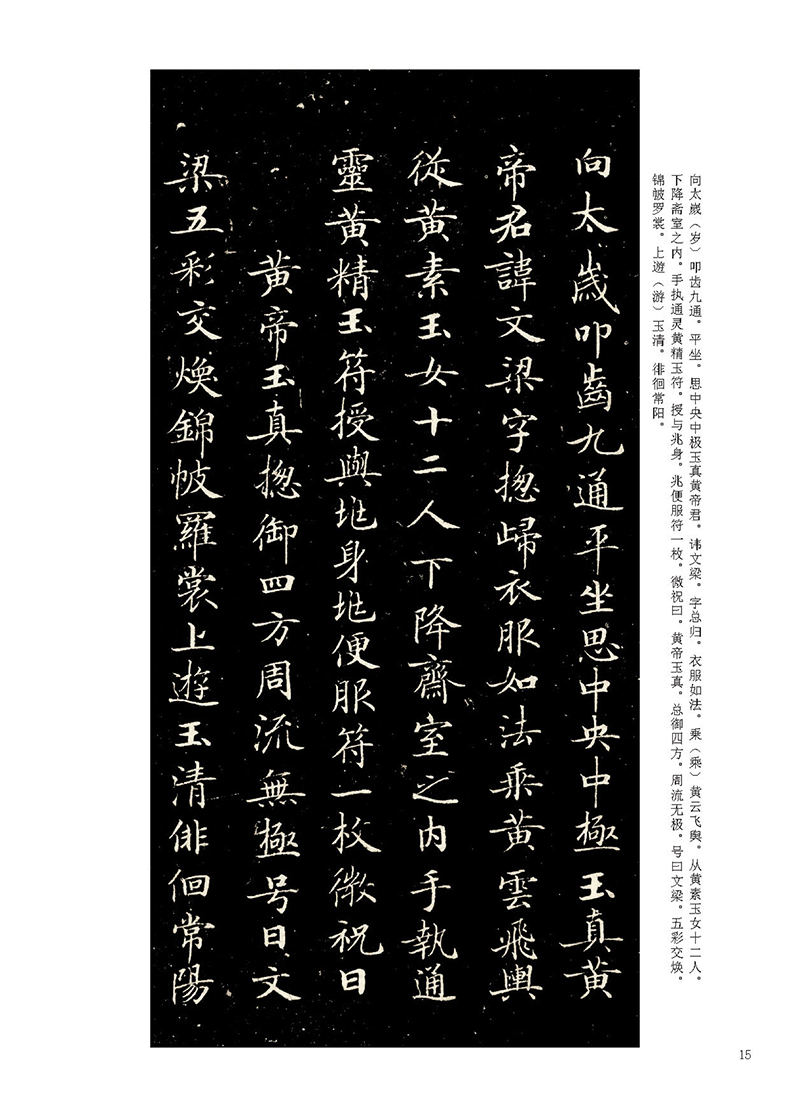 向太歲叩齒九通平坐思中央中極玉真黄
帝君諱文梁字揔歸衣服如法乗黄雲飛輿
從黄素玉女十二人下降齋室之内手執通
靈黄精玉符授與兆身兆便服符一枚微祝曰
黄帝玉真揔御四方周流無極号曰文
梁五彩交煥錦帔羅裳上遊玉清俳佪常陽
向太嵗（岁）叩齿九通。平坐。思中央中极玉真黄帝君。讳文梁。字总归。衣服如法。乗（乘）黄云飞舆。从黄素玉女十二人。
下降斋室之内。手执通灵黄精玉符。授与兆身。兆便服符一枚。微祝曰。黄帝玉真。总御四方。周流无极。号曰文梁。五彩交焕。
锦帔罗裳。上遊（游）玉清。徘徊常阳。
15